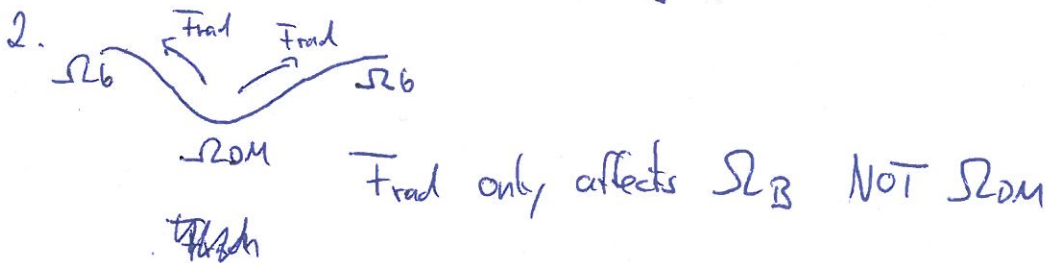 2.
Frad Frad
Ωb Ωb
ΩDM
Frad only affects ΩB NOT ΩDM